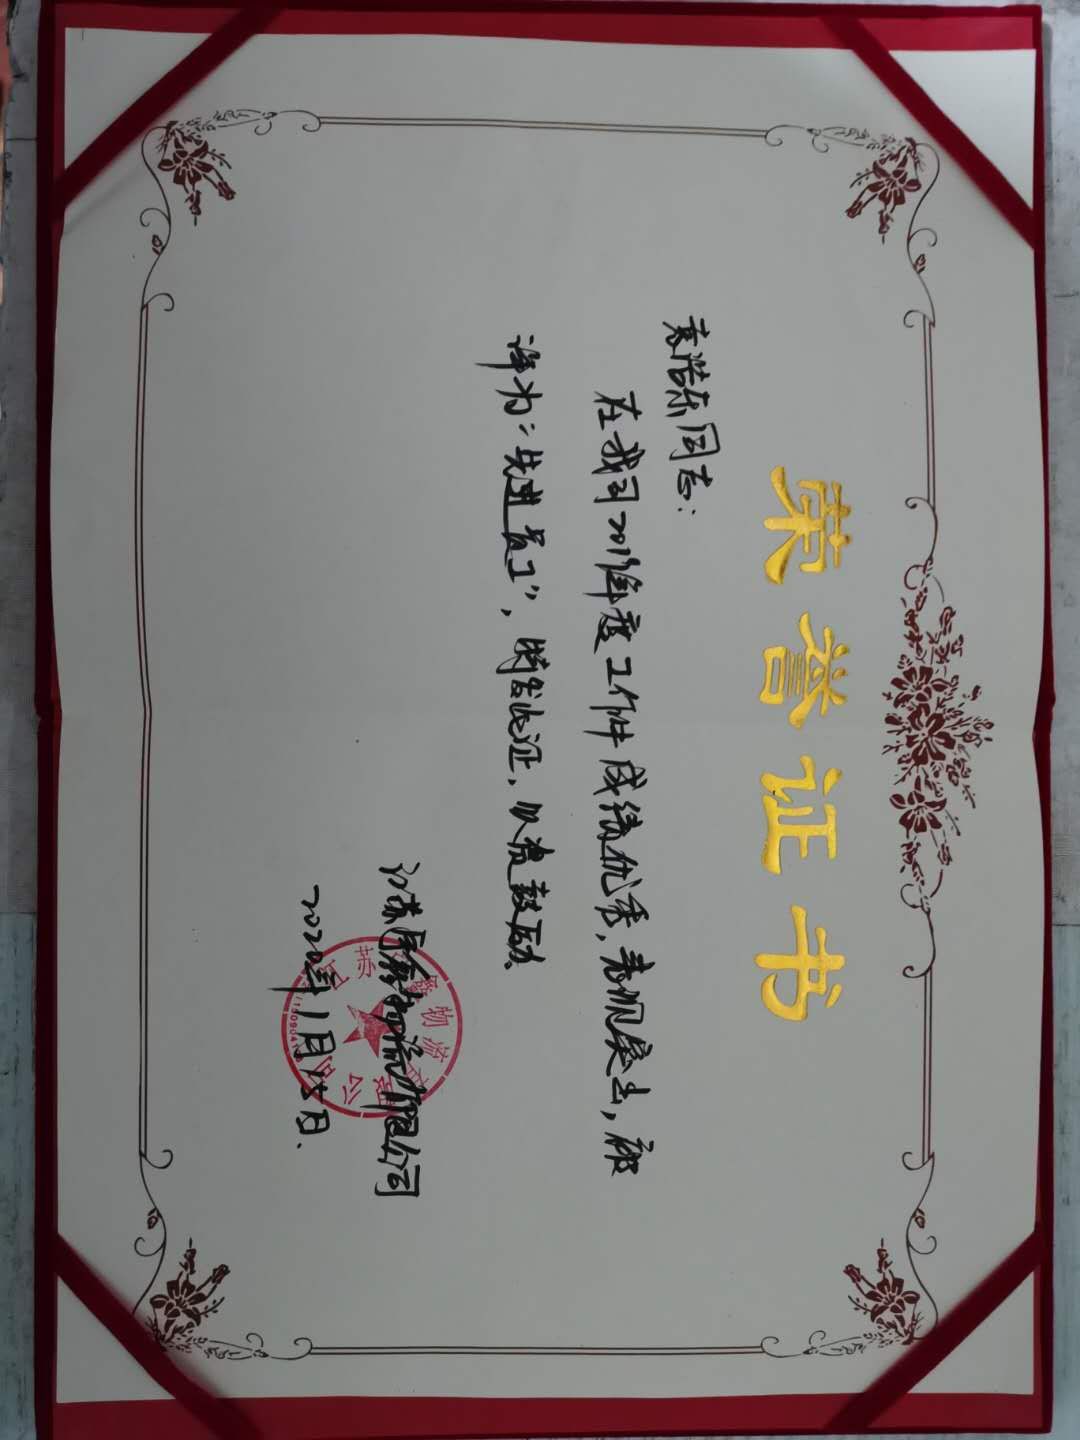 荣誉证书
袁浩东同志：
在我司2019年度工作中成绩优秀，表现突出，被
评为“先进员工”，特发此证，以资鼓励。
江苏 物流有限公司
2020年1月15日.